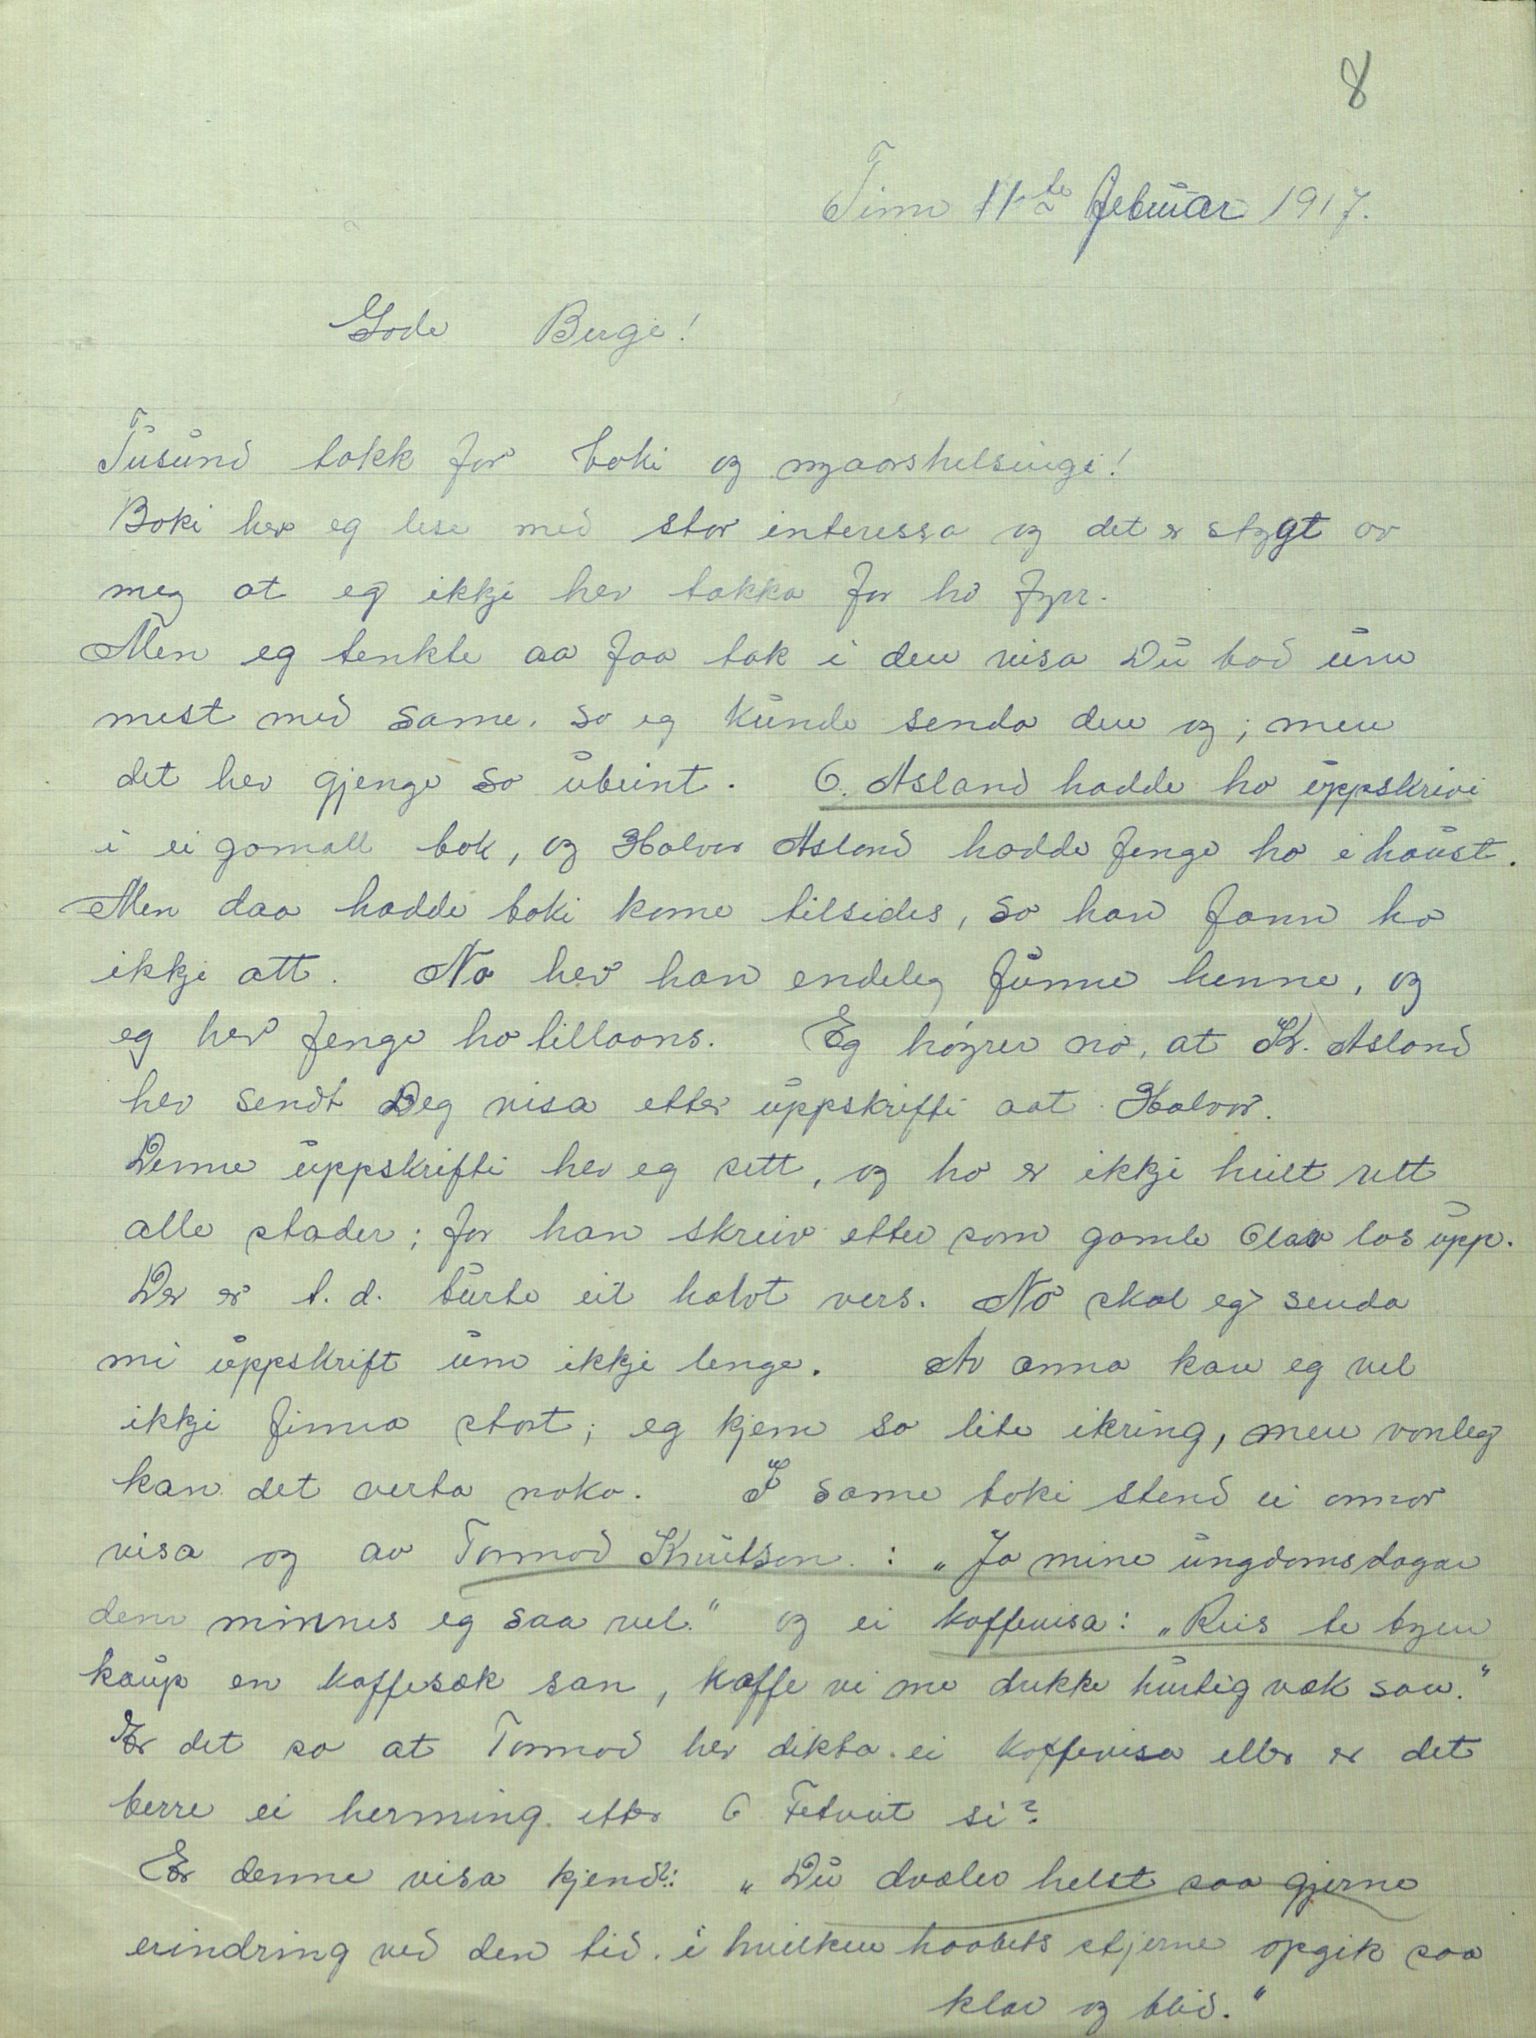 8
Tinn 11te februar 1917.
Gode Berge!
Tusund takk for boki og nyaarshelsingi!
Boki hev eg lese med stor interessa og det er stygt av
meg at eg ikkji hev takka for ho fyrr.
Men eg tenkte aa faa tak i den visa Du bad um
mest med same, so eg kunde senda den og; men
det hev gjenge so ubeint. O. Asland hadde ho uppskrivi
i ei gomall bok, og Halvor Asland hadde fenge ho i haust.
Men daa hadde boki kome tilsides, so han fann ho
ikkji att. No hev han endeleg funne henne, og
eg hev fenge ho tillaans. Eg høyrer no, at Kr. Asland
hev sendt Deg visa etter uppskrifti aat Halvor.
Denne uppskrifti hev eg sett, og ho er ikkji heilt rett
alle stader; for han skreiv etter som gamle Olav las upp.
Der er t. d. burte eit halvt vers. No skal eg senda
mi uppskrift um ikkji lenge. Av anna kan eg vel
ikkji finna stort; eg kjem so lite ikring, men vonleg
kan det verta noko. I same boki stend ei annor
visa og av Tormod Knutson: "Ja mine ungdomsdagar
dem minnes eg saa vel." og ei kaffevisa: "Reis te byen
kaup en kaffesæk san, kaffe vi me drikke hurtig væk san."
Er det so at Tormod hev dikta ei kaffevisa eller er det
berre ei herming etter O Fetveit si?
Er denne visa kjend?: "Du dvæler helst saa gjerne
erindring ved den tid. i hvilken haabets stjerne opgik saa
klar og blid."